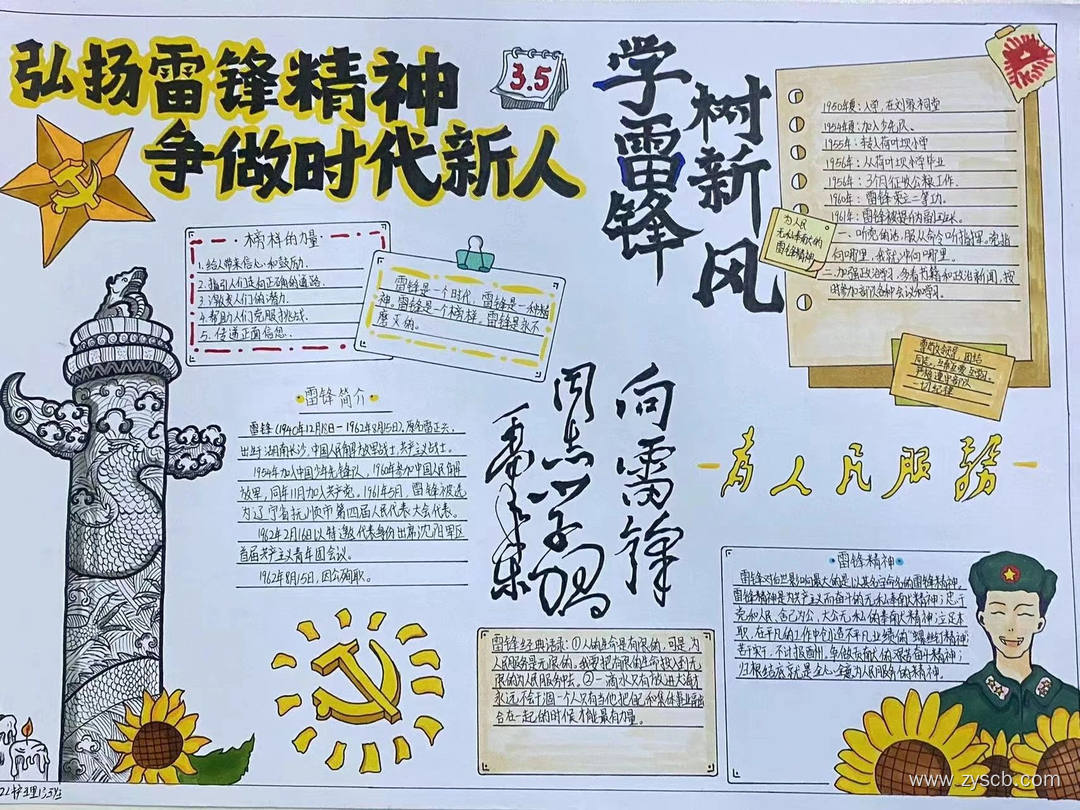 弘扬雷锋精神
争做时代新人
3.5
学雷锋
树新风
1950年夏：入学，在刘家祠堂
1954年夏：加入少先队。
1955年：转入荷叶坝小学
1956年：从荷叶坝小学毕业
1956年：3个月征收公粮工作.
1960年：雷锋荣立二等功。
1961年：雷锋被提升为副班长。
一、听党的话，服从命令听指挥。党指
向哪里，我就冲向哪里。
二、加强政治学习，多看书籍和政治新闻，按
时参加部队各种会议和学习。
为人民
无私奉献的
雷锋精神
团结
同志，
一切纪律
榜样的力量
1.给人带来信心和鼓励.
2.指引人们走向正确的道路.
3.激发人们的潜力.
4.帮助人们克服挑战.
5.传递正面信息.
雷锋是一个时代，雷锋是一种精
神。雷锋是一个榜样，雷锋是永不
磨灭的。
雷锋简介
雷锋（1940年12月18日-1962年8月15日），原名雷正兴，
出生于湖南长沙，中国人民解放军战士，共产主义战士。
1954年加入中国少年先锋队，1960年参加中国人民解
放军，同年11月加入共产党。1961年5月，雷锋被选
为辽宁省抚顺市第四届人民代表大会代表。
1962年2月16日以特邀代表身份出席沈阳军区
首届共产主义青年团会议。
1962年8月15日，因公殉职。
向雷锋
同志学习
毛泽东
为人民服务
雷锋经典语录：①人的生命是有限的，可是，为
人民服务是无限的，我要把有限的生命投入到无
限的为人民服务中去。②一滴水只有放进大海才
永远不会干涸，一个人只有当他把自己和集体事业融
合在一起的时候才能最有力量。
雷锋精神
雷锋对后世影响最大的是以其名字命名的雷锋精神。
雷锋精神是为共产主义而奋斗的无私奉献精神；忠于
党和人民、舍己为公、大公无私的奉献精神；立足本
职、在平凡的工作中创造不平凡业绩的"螺丝钉精神"；
苦干实干、不计报酬、争做贡献的艰苦奋斗精神；
归根结底就是全心全意为人民服务的精神。
www.zyscb.com